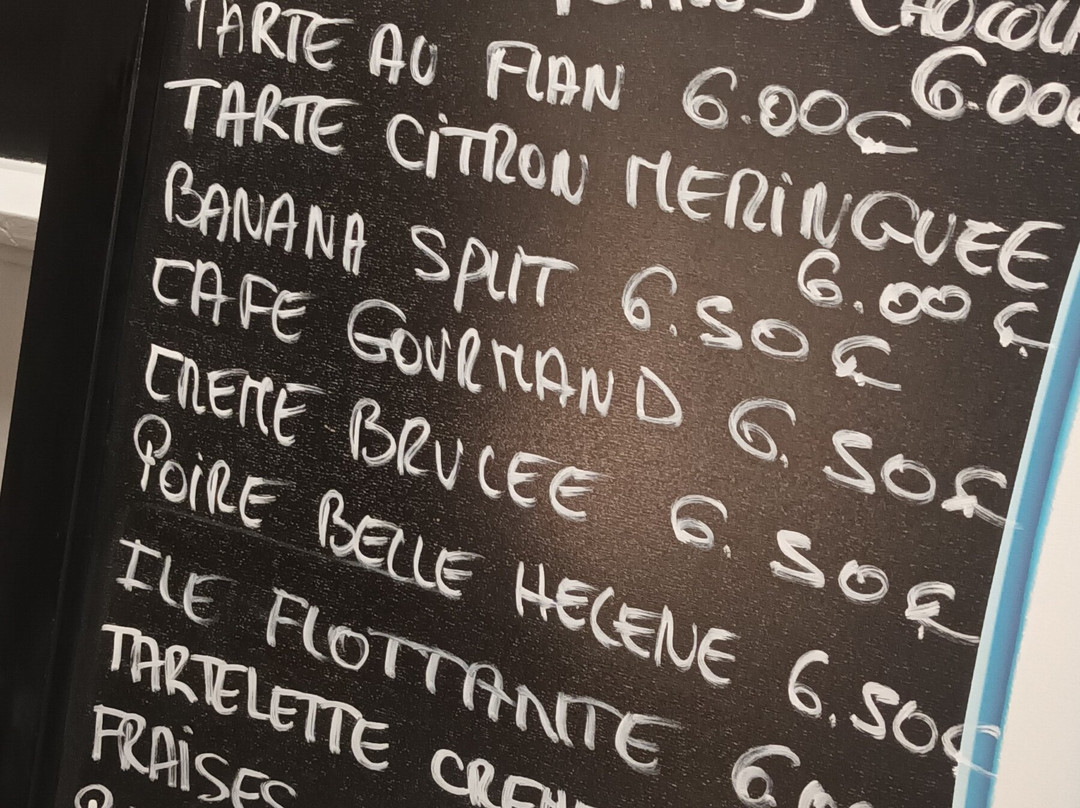 CHOCOL
6.00€
TARTE AU FLAN 6.00€
TARTE CiTRON MERiNQUEE
6.00 €
BANANA SPLIT 6.50 €
CAFE GOURMAND 6.50€
CREME BRULEE 6.50€
POiRE BELLE HELENE 6.50€
ILE FLOTTANTE 6.00
TARTELETTE CREME
FRAiSES